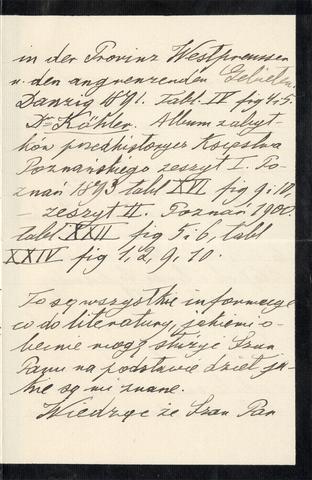 in der Provinz Westpreussen
u. den angrenzenden Gebieten.
Danzig 1891. Tabl. IV fig 4 i 5.
Dr Köhler. Album zabyt-
ków przedhistorycz Księstwa
Poznańskiego zeszyt I. Po-
znań 1893 tabl XVI fig 9 i 10
– zeszyt II. Poznań 1900.
tabl XXII fig 5 i 6, tabl
XXIV fig 1, 2, 9 i 10.
To są wszystkie informacye
co do literatury, jakiemi o-
becnie mogę służyć Szan
Panu na podstawie dzieł ja-
kie są mi znane.
Wiedząc że Szan Pan